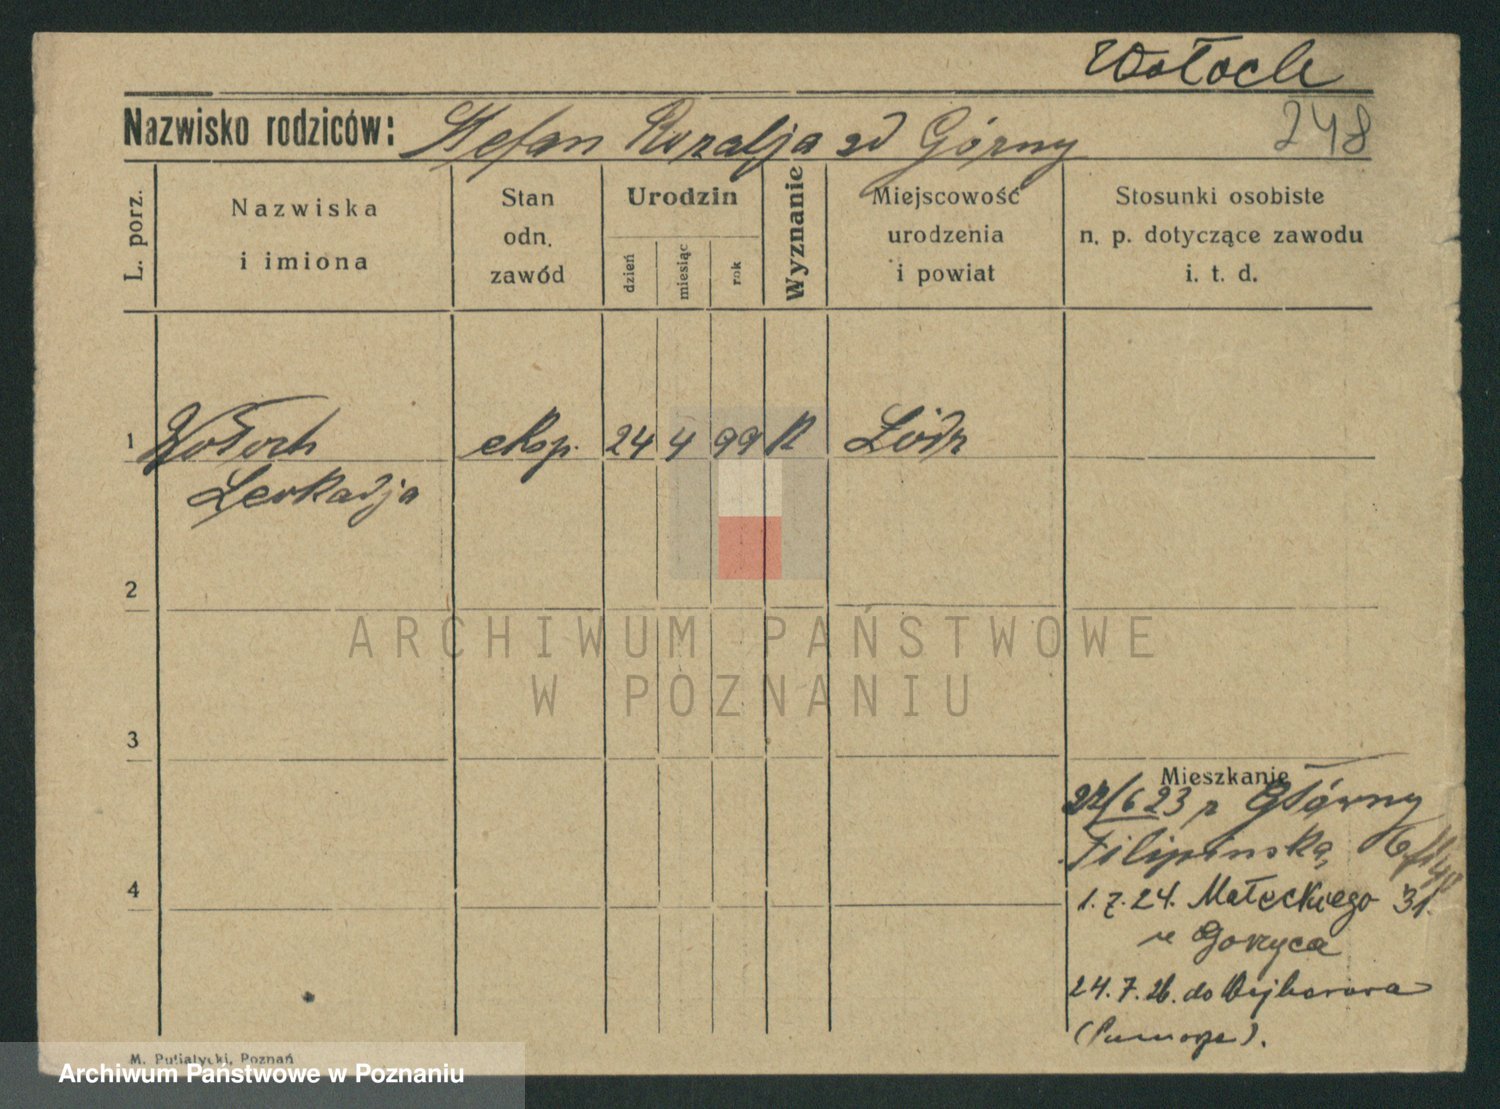 Wołoch
Nazwisko rodziców: Stefan Rozalja zd Górny
248
L. porz.
Nazwiska
i imiona
Stan
odn.
zawód
Urodzin
dzień
miesiąc
rok
Wyznanie
Miejscowość
urodzenia
i powiat
Stosunki osobiste
n. p. dotyczące zawodu
i. t. d.
1 Wołoch eksp. 24 4 99 R Łódź
Leokadja
2
ARCHIWUM PAŃSTWOWE
W POZNANIU
3
Mieszkanie
22/6 23 z Główny
Filipińska
4
1.7.24. Małeckiego 31.
24.7.26. do Wejherowa
M. Putiatycki, Poznań
Archiwum Państwowe w Poznaniu